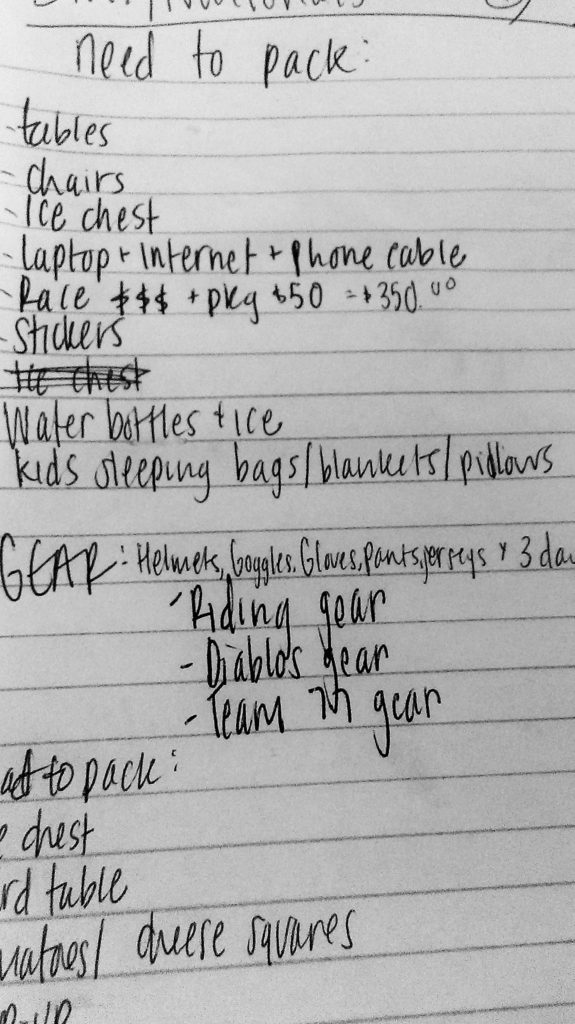 need to pack:
- tables
- chairs
- Ice chest
- laptop + internet + phone cable
- Race $$$ + pkg $50 = $350.00
- Stickers
Ice chest
Water bottles + ice
kids sleeping bags/blankets/pillows
GEAR: Helmets, Goggles, Gloves, Pants, jerseys x 3 da
- Riding gear
- Diablos gear
- Team gear
to pack:
chest
rd table
matoes/ cheese squares